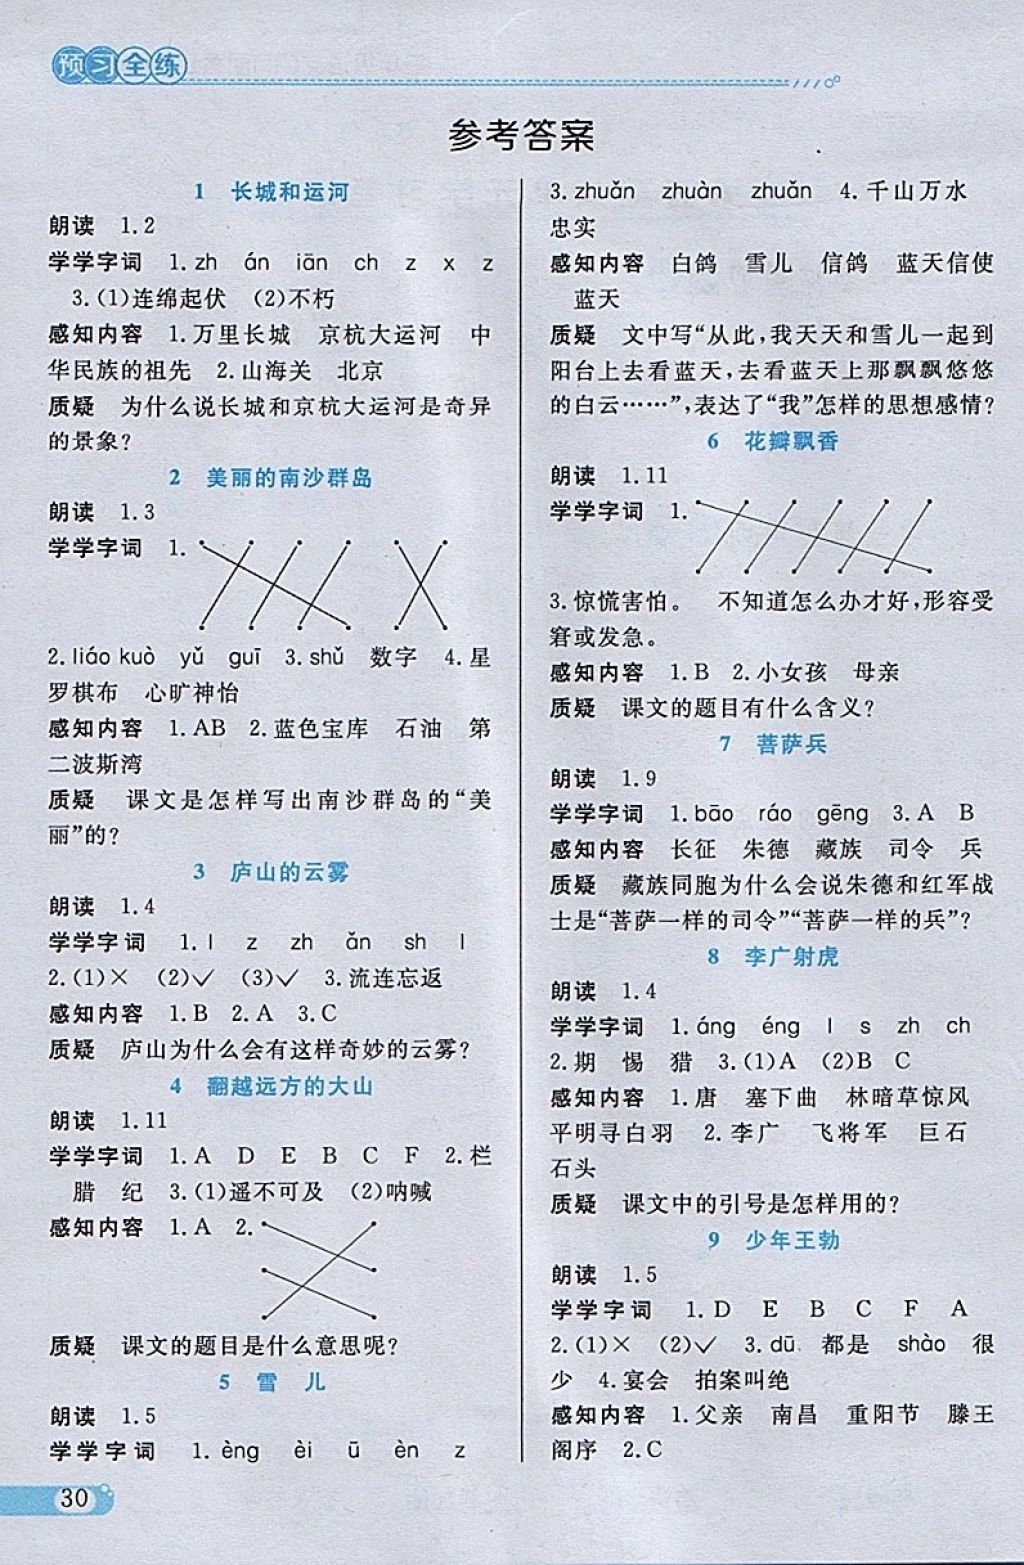 预习全练
参考答案
1 长城和运河
朗读 1.2
学学字词 1.zh án iān ch z x z
3.(1)连绵起伏 (2)不朽
感知内容 1.万里长城 京杭大运河 中
华民族的祖先 2.山海关 北京
质疑 为什么说长城和京杭大运河是奇异
的景象?
2 美丽的南沙群岛
朗读 1.3
学学字词 1.
2.liáo kuò yǔ guī 3.shǔ 数字 4.星
罗棋布 心旷神怡
感知内容 1.AB 2.蓝色宝库 石油 第
二波斯湾
质疑 课文是怎样写出南沙群岛的“美
丽”的?
3 庐山的云雾
朗读 1.4
学学字词 1.l z zh ǎn sh l
2.(1)× (2)√ (3)√ 3.流连忘返
感知内容 1.B 2.A 3.C
质疑 庐山为什么会有这样奇妙的云雾?
4 翻越远方的大山
朗读 1.11
学学字词 1.A D E B C F 2.栏
腊 纪 3.(1)遥不可及 (2)呐喊
感知内容 1.A 2.
质疑 课文的题目是什么意思呢?
5 雪 儿
朗读 1.5
学学字词 1.èng èi ū èn z
30
3.zhuǎn zhuàn zhuǎn 4.千山万水
忠实
感知内容 白鸽 雪儿 信鸽 蓝天信使
蓝天
质疑 文中写“从此,我天天和雪儿一起到
阳台上去看蓝天,去看蓝天上那飘飘悠悠
的白云……”,表达了“我”怎样的思想感情?
6 花瓣飘香
朗读 1.11
学学字词 1.
3.惊慌害怕。 不知道怎么办才好,形容受
窘或发急。
感知内容 1.B 2.小女孩 母亲
质疑 课文的题目有什么含义?
7 菩萨兵
朗读 1.9
学学字词 1.bāo ráo gēng 3.A B
感知内容 长征 朱德 藏族 司令 兵
质疑 藏族同胞为什么会说朱德和红军战
士是“菩萨一样的司令”“菩萨一样的兵”?
8 李广射虎
朗读 1.4
学学字词 1.áng éng l s zh ch
2.期 惕 猎 3.(1)A (2)B C
感知内容 1.唐 塞下曲 林暗草惊风
平明寻白羽 2.李广 飞将军 巨石
石头
质疑 课文中的引号是怎样用的?
9 少年王勃
朗读 1.5
学学字词 1.D E B C F A
2.(1)× (2)√ 3.dū 都是 shào 很
少 4.宴会 拍案叫绝
感知内容 1.父亲 南昌 重阳节 滕王
阁序 2.C